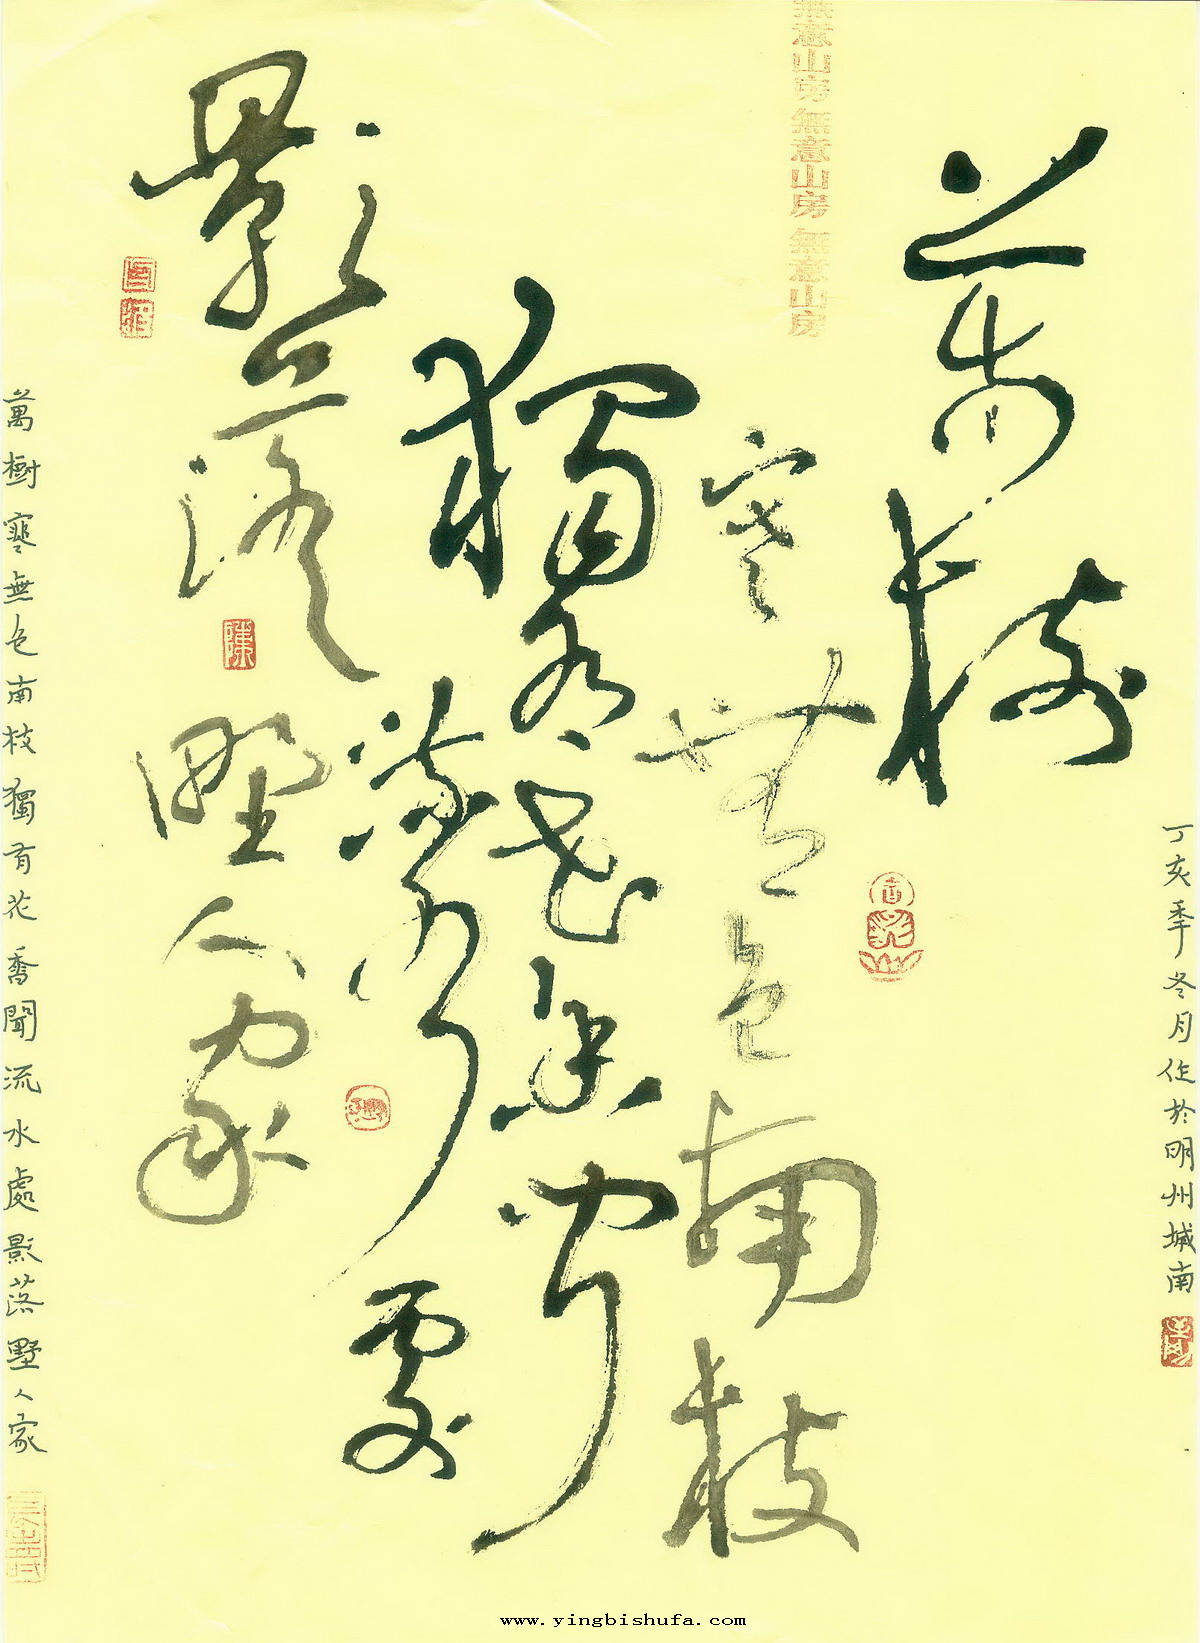 丁亥季冬月作於明州城南
萬樹
無意山房無意山房無意山房
寒無色南枝
獨有花香聞
流水處
影落野人家
陳
萬樹寒無色南枝獨有花香聞流水處影落墅人家
www.yingbishufa.com